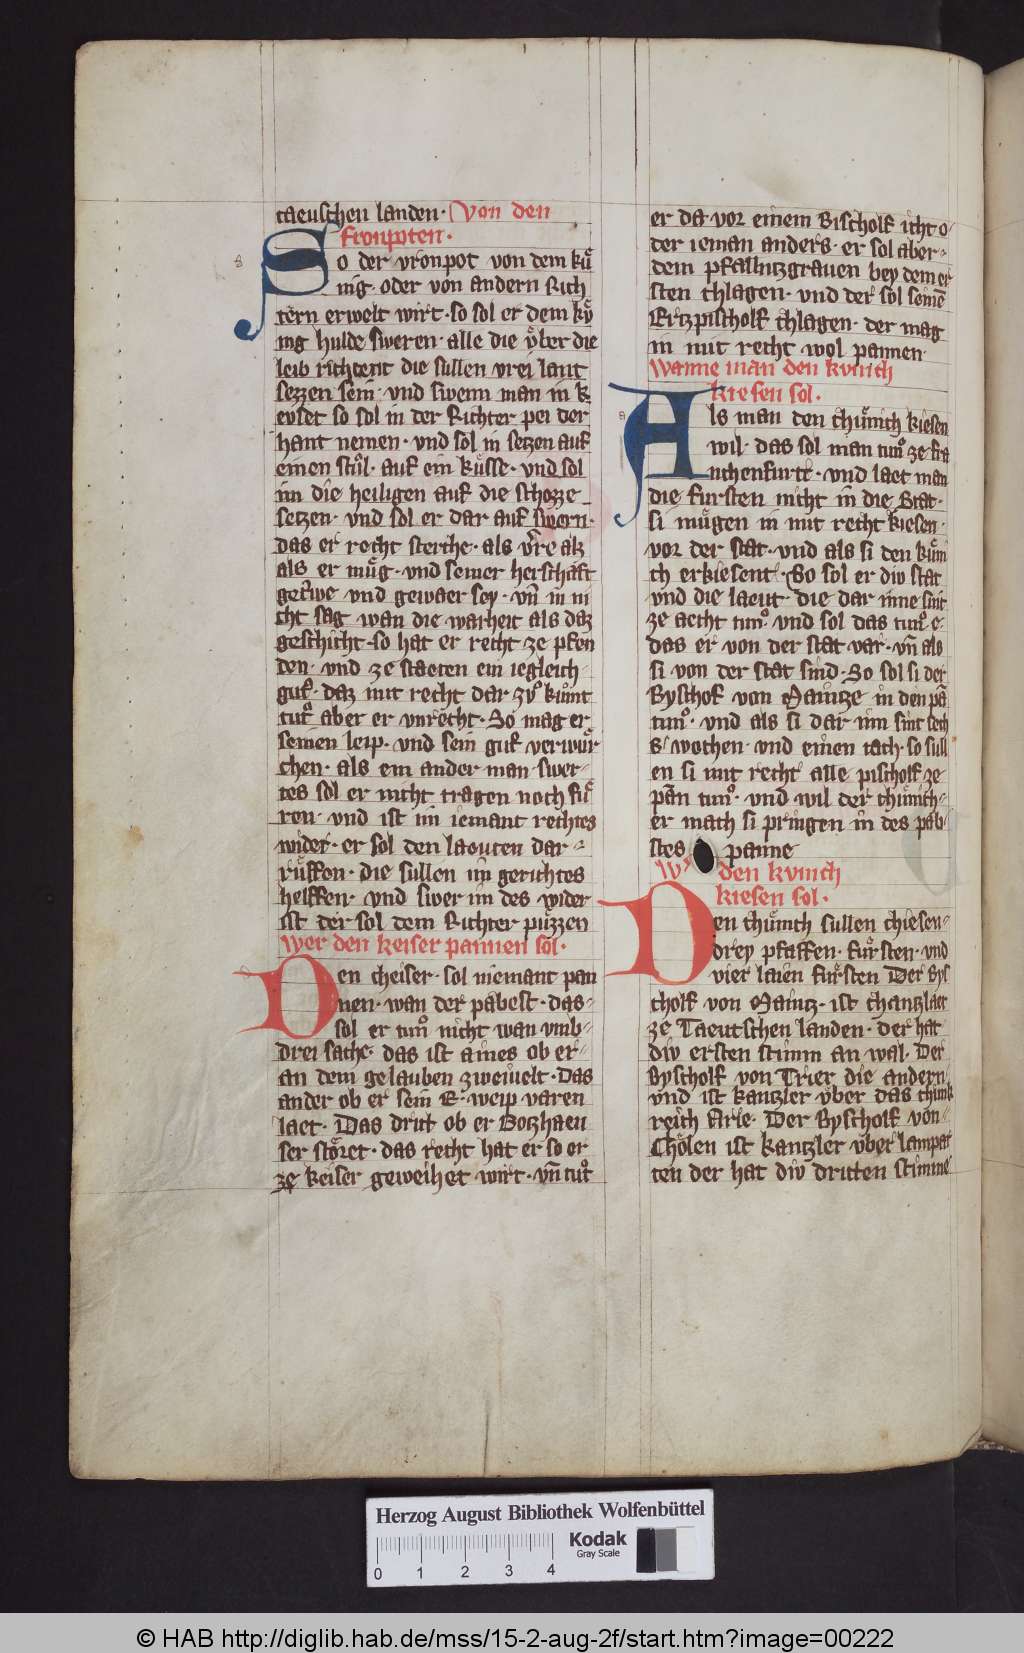 taeuschen landen· Von den
fronpoten·
So der vronpot von dem kuͤ
nig· oder von andern Rich
tern erwelt wirt· so sol er dem kuͤ
nig hulde sweren· alle die vͤber die
leib richtent die sullen vrei laut
sezzen sein· vnd swenn man in k
evset so sol in der Richter pei der
hant nemen· vnd sol in setzen auf
einen stuͤl· auf ein kuͤsse· vnd sol
im die heiligen auf die schozze
setzen· vnd sol er dar auf swern·
das er recht sterche· als verre alz
als er muͤg· vnd seiner herschaft
getrwe vnd gewaer sey· vn̄ in ni
cht sag wan die warheit als daz
geschicht· so hat er recht ze pfen
den· vnd ze staeten ein iegleich
gut· daz mit recht dar zvͦ kuͤmt
tuͦt aber er vnrecht· So mag er
seinen leip· vnd sein gut verwuͤr
chen· als ein ander man· swer
tes sol er nicht tragen noch fuͤ
ren· vnd ist im iemant rechtes
wider· er sol den laeuten dar
ruͤffen· die sullen im gerichtes
helffen· vnd swer im des wider
ist der sol dem Richter puͤzzen
Wer den keiser pannen sol·
Den cheiser· sol niemant pan
nen· wan der pabest· das
sol er tuͦn nicht wan vmb
drei sache· das ist aines ob er
an dem gelauben zweiuelt· Das
ander ob er sein E· weip varen
laet· Das drit ob er Gotzhaeu
ser stoͤret· das recht hat er so er
ze keiser geweihet wirt· vn̄ tuͦt
er da vor einem Bischolf icht o
der ieman anders· er sol aber
dem pfallntzgrauen bey dem er
sten chlagen· vnd der sol seinē
Ertzpischolf chlagen· der mag
in mit recht wol pannen·
Wanne man den kvnich
kiesen sol·
Als man den chuͤnich kiesen
wil· das sol man tuͦn ze fra
nchenfurte· vnd laet man
die fursten nicht in die Stat·
si muͤgen in mit recht kiesen·
vor der stat· vnd als si den kuͤni
ch erkiesent· So sol er div stat
vnd die laeut· die dar inne sint
ze aecht tuͦn· vnd sol das tuͦn e·
das er von der stat var· vn̄ als
si von der stat sind· So sol si der
Byschof von Maintze in den pā
tuͦn· vnd als si dar inn sint sech
s wochen· vnd einen tach· so sull
en si mit recht alle pischolf ze
pan tuͦn· vnd wil der chuͤnich
er mach si pringen in des pab
stes panne
den kvnich
kiesen sol·
Den chuͤnich sullen chiesen
drey pfaffen· fuͤrsten· vnd
vier laien fuͤrsten Der Bys
cholf von Maintz· ist chantzlaer
ze Taeutschen landen· der hat
div ersten stimm an wal· Der
Byscholf von Trier die andern
vnd ist kantzler vͤber das chunk
reich Arle· Der Byscholf von
Choͤlen ist kantzler vber lampar
ten der hat div dritten stimme
Herzog August Bibliothek Wolfenbüttel
Kodak
Gray Scale
0 1 2 3 4
© HAB http://diglib.hab.de/mss/15-2-aug-2f/start.htm?image=00222